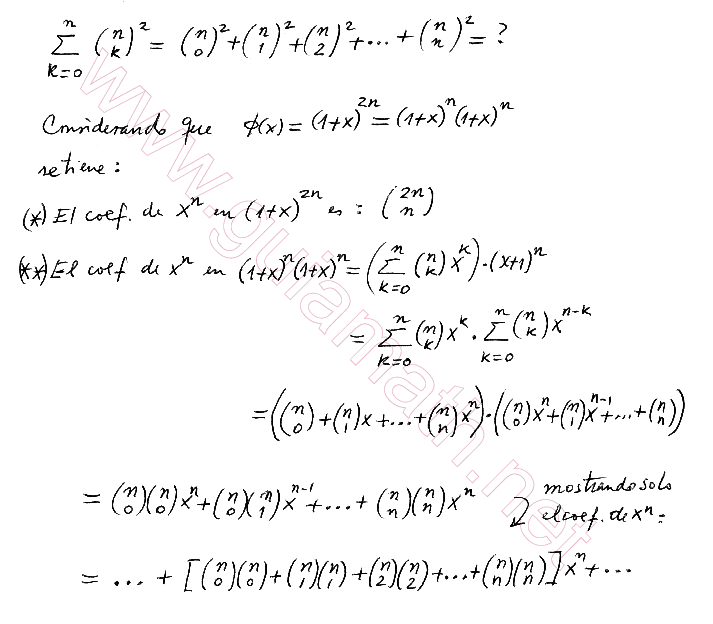 \sum_{k=0}^{n} \binom{n}{k}^2 = \binom{n}{0}^2 + \binom{n}{1}^2 + \binom{n}{2}^2 + ... + \binom{n}{n}^2 = ?
Considerando que ϕ(x) = (1+x)^{2n} = (1+x)^n (1+x)^n
se tiene :
(*) El coef. de x^n en (1+x)^{2n} es : \binom{2n}{n}
(**) El coef de x^n en (1+x)^n (1+x)^n = (\sum_{k=0}^{n} \binom{n}{k} x^k) · (x+1)^n
= \sum_{k=0}^{n} \binom{n}{k} x^k · \sum_{k=0}^{n} \binom{n}{k} x^{n-k}
= (\binom{n}{0} + \binom{n}{1} x + ... + \binom{n}{n} x^n) · (\binom{n}{0} x^n + \binom{n}{1} x^{n-1} + ... + \binom{n}{n})
= \binom{n}{0} \binom{n}{0} x^n + \binom{n}{0} \binom{n}{1} x^{n-1} + ... + \binom{n}{n} \binom{n}{n} x^n
mostrando solo
el coef. de x^n :
= ... + [\binom{n}{0} \binom{n}{0} + \binom{n}{1} \binom{n}{1} + \binom{n}{2} \binom{n}{2} + ... + \binom{n}{n} \binom{n}{n}] x^n + ...
www.guiamath.net